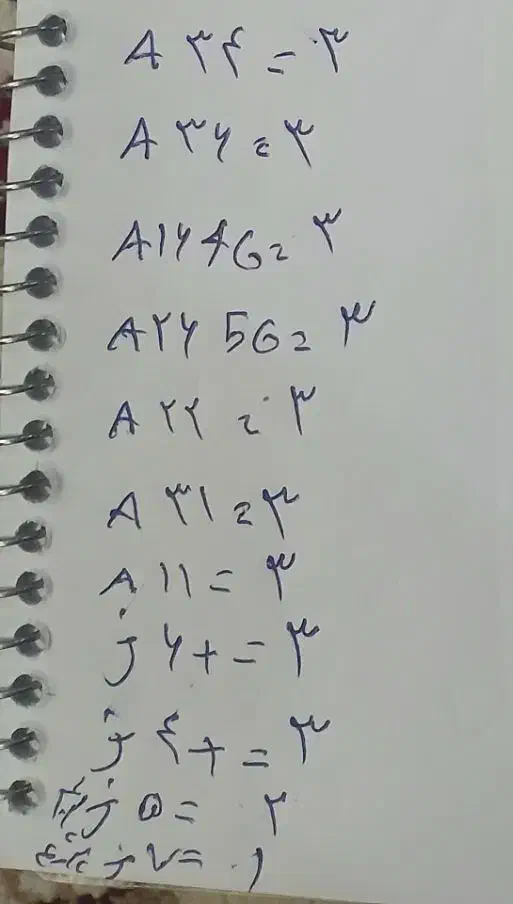 A ۳۴ = ۳
A ۳۶ = ۳
A۱۶ 4G = ۳
A۲۶ 5G = ۳
A ۲۲ = ۳
A ۳۱ = ۳
A ۱۱ = ۳
ز ۶+ = ۳
ز ۴+ = ۳
ز ۵ = ۲
ز ۷ = ۱